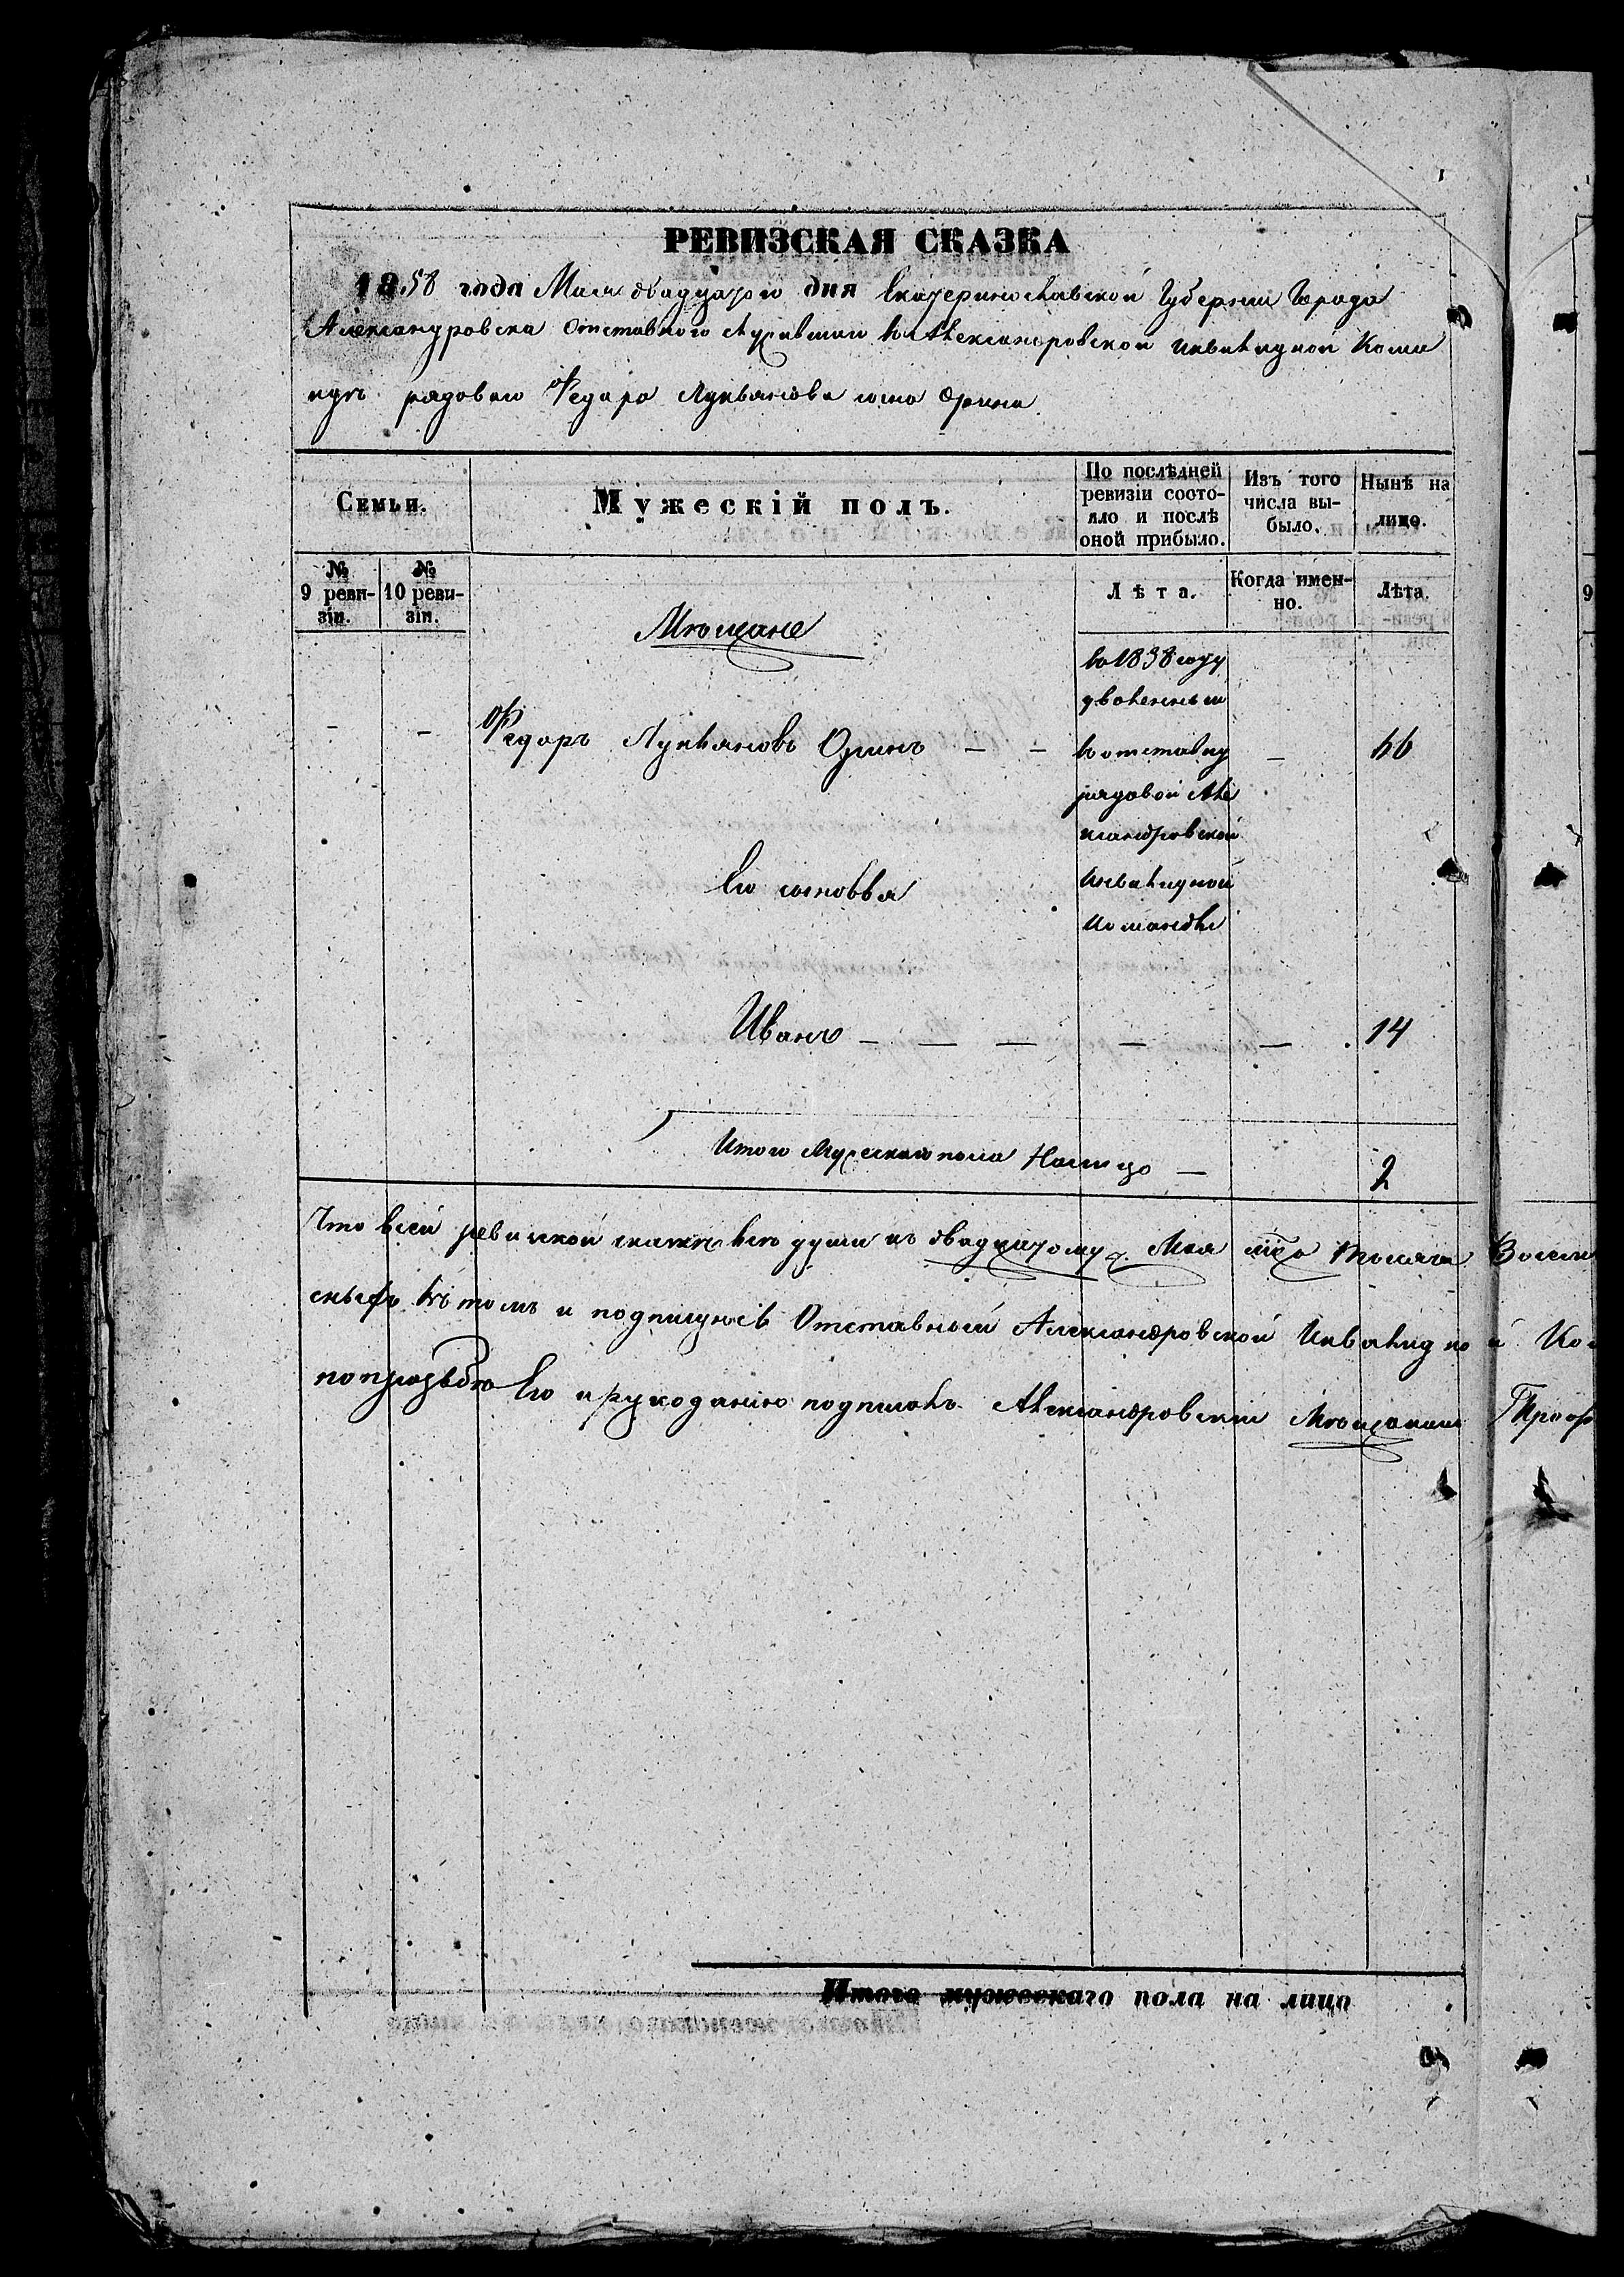 РЕВИЗСКАЯ СКАЗКА
1858 года Мая двадцатого дня Екатеринославской Губернии Города
Александровска Отставного служившаго въ Александровской инвалидной Кома
ндѣ рядоваго Федора Лукьянова сына
Семьи.
Мужескій полъ.
По послѣдней ревизіи состо-
яло и послѣ
оной прибыло.
Изъ того
числа вы-
было.
Нынѣ на
лицо.
№
9 реви-
зіи.
№
10 реви-
зіи.
Лѣта.
Когда имен-
но.
Лѣта.
Мѣщане
въ 1838 году
уволенный
Федоръ Лукьяновъ — — въ отставку — 66
рядовой Але
ксандровской
Его сыновья инвалидной
команды
Иванъ — — — — — 14
Итого Мужескаго пола Налицо — 2
Что в сей ревизской сказке всѣ души къ двадцатому ч. Мая сего тысяча Восем
въ томъ и подписуюсь Отставный Александровской Инвалидно й Ко
по прозьбѣ Его и рукоданію подписалъ Александровскій Мѣщанинъ
Итого мужескаго пола на лицо
9